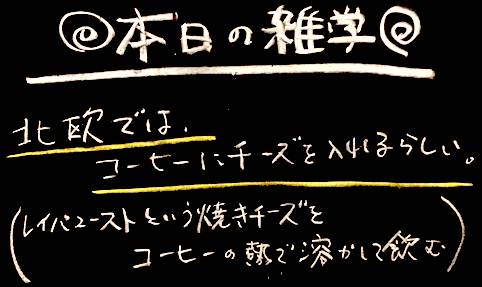 本日の雑学
北欧では、
コーヒーにチーズを入れるらしい。
(レイパユーストという焼きチーズを
コーヒーの熱で溶かして飲む)